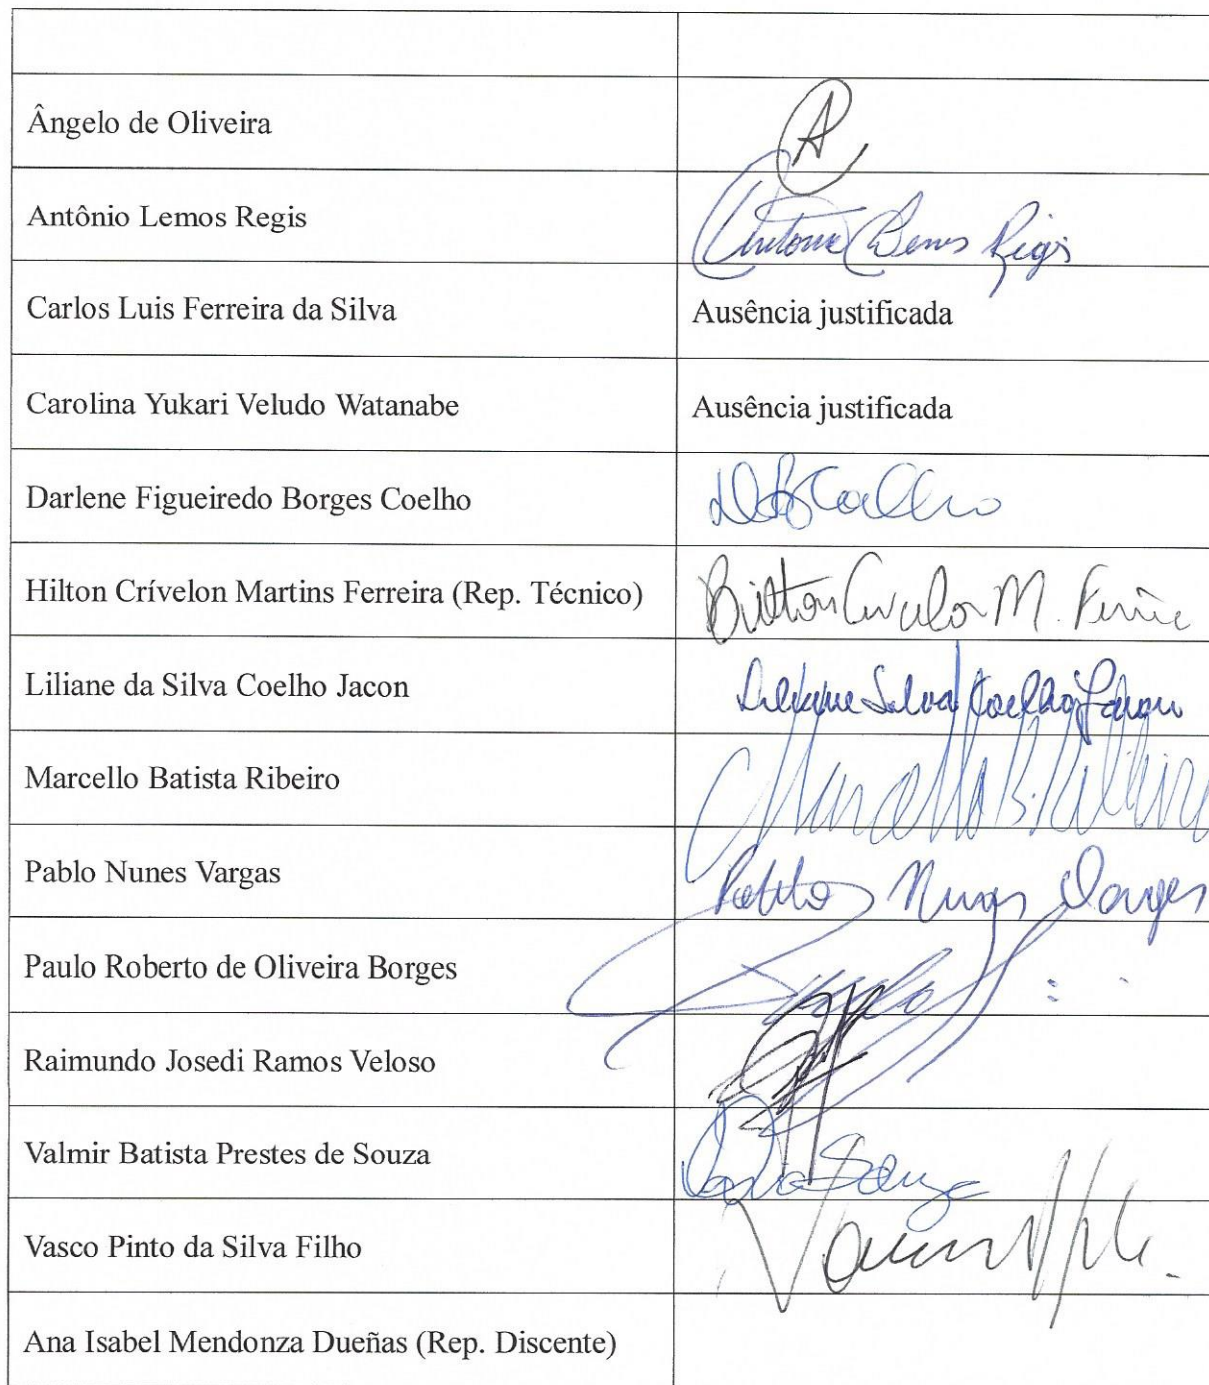 Ângelo de Oliveira
A
Antônio Lemos Regis
Antonio Lemos Regis
Carlos Luis Ferreira da Silva
Ausência justificada
Carolina Yukari Veludo Watanabe
Ausência justificada
Darlene Figueiredo Borges Coelho
DFBCoelho
Hilton Crívelon Martins Ferreira (Rep. Técnico)
M.
Liliane da Silva Coelho Jacon
Liliane Silva Coelho Jacon
Marcello Batista Ribeiro
Marcello B. Ribeiro
Pablo Nunes Vargas
Pablo Nunes Vargas
Paulo Roberto de Oliveira Borges
Raimundo Josedi Ramos Veloso
Valmir Batista Prestes de Souza
Souza
Vasco Pinto da Silva Filho
Ana Isabel Mendonza Dueñas (Rep. Discente)